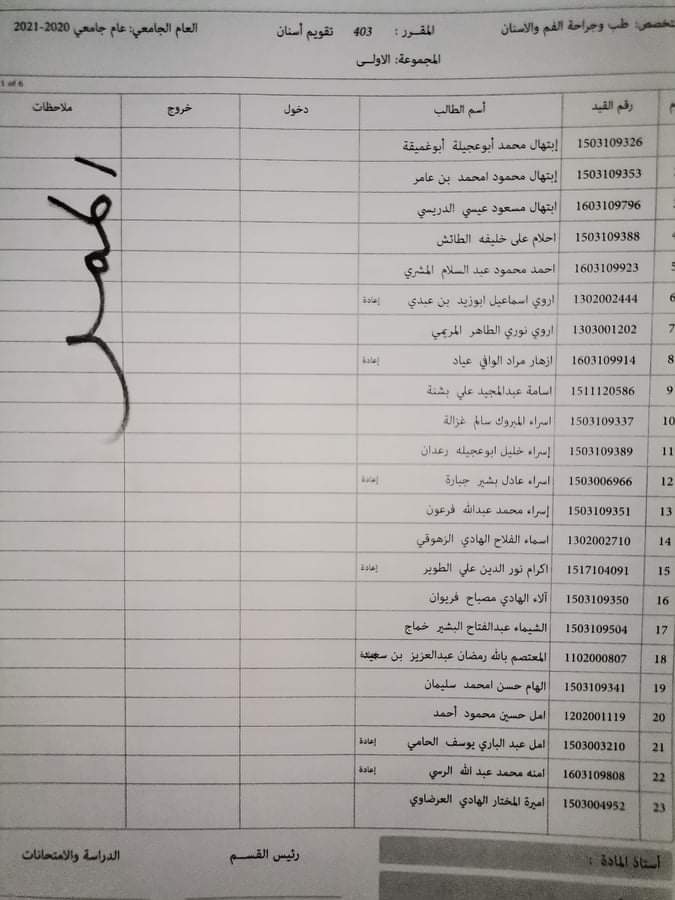 تخصص: طب وجراحة الفم والاسنان المقـرر : 403 تقويم أسنان العام الجامعي: عام جامعي 2020-2021
المجموعة: الاولـى
1 of 6
م رقم القيد أسم الطالب دخول خروج ملاحظات
1503109326 إبتهال محمد أبوعجيلة أبوغميقة
1503109353 إبتهال محمود امحمد بن عامر
1603109796 ابتهال مسعود عيسي الدريسي
1503109388 احلام على خليفه الطائش
5 1603109923 احمد محمود عبد السلام المشري
6 1302002444 اروي اسماعيل ابوزيد بن عبدي إعادة
7 1303001202 اروي نوري الطاهر المريمي
8 1603109914 ازهار مراد الوافي عياد إعادة
9 1511120586 اسامة عبدالمجيد علي بشنة
10 1503109337 اسراء المبروك سالم غزالة
11 1503109389 إسراء خليل ابوعجيله رعدان
12 1503006966 اسراء عادل بشير جبارة إعادة
13 1503109351 إسراء محمد عبدالله فرعون
14 1302002710 اسماء الفلاح الهادي الزهوقي
15 1517104091 اكرام نور الدين علي الطوير إعادة
16 1503109350 آلاء الهادي مصباح فريوان
17 1503109504 الشيماء عبدالفتاح البشير خماج
18 1102000807 المعتصم بالله رمضان عبدالعزيز بن
19 1503109341 الهام حسن امحمد سليمان
20 1202001119 امل حسين محمود أحمد
21 1503003210 امل عبد الباري يوسف الحامي إعادة
22 1603109808 امنه محمد عبد الله الرسي إعادة
23 1503004952 اميرة المختار الهادي العرضاوي
أستاذ المادة : رئيس القســم الدراسة والامتحانات